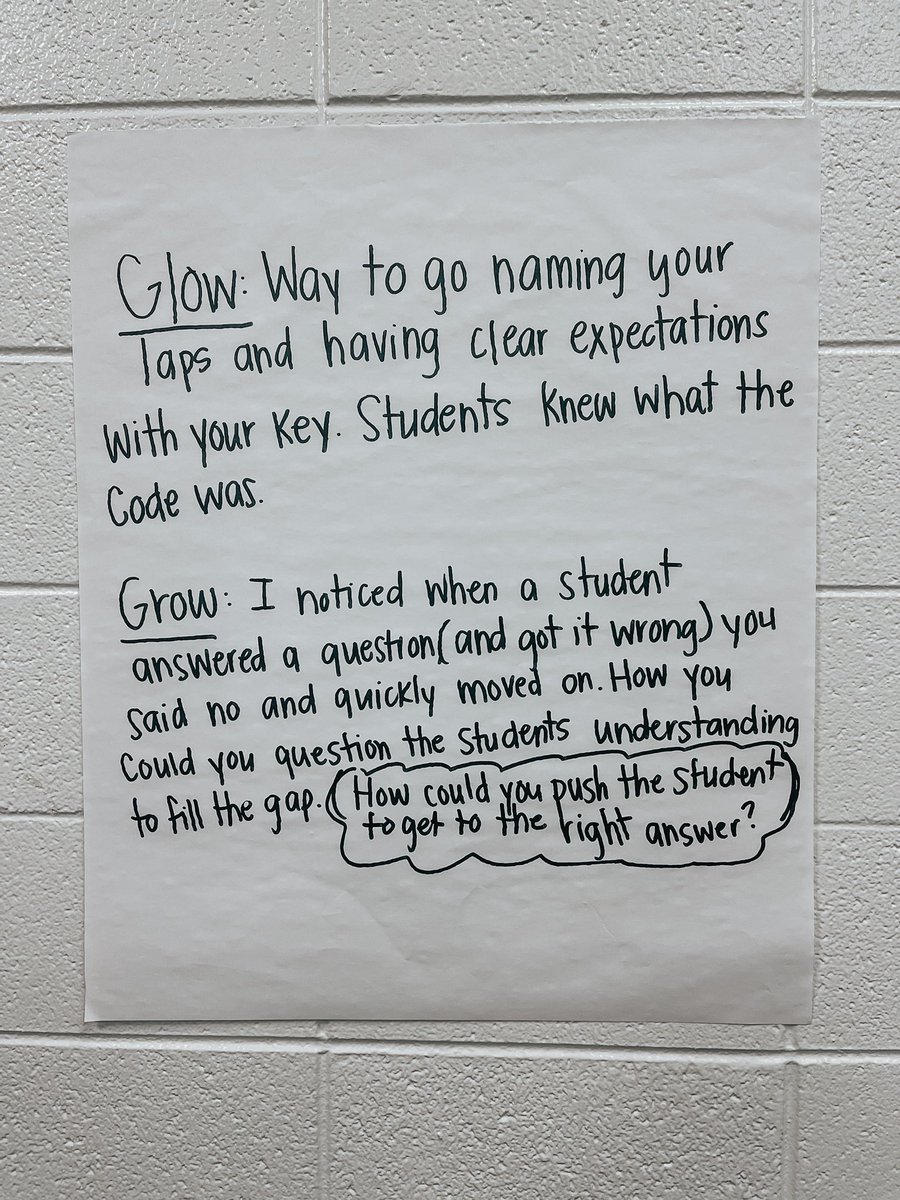 Glow: Way to go naming your
laps and having clear expectations
with your key. Students knew what the
Code was.
Grow: I noticed when a student
answered a question (and got it wrong) you
said no and quickly moved on. How you
could you question the students understanding
to fill the gap. (How could you push the student
to get to the right answer?)